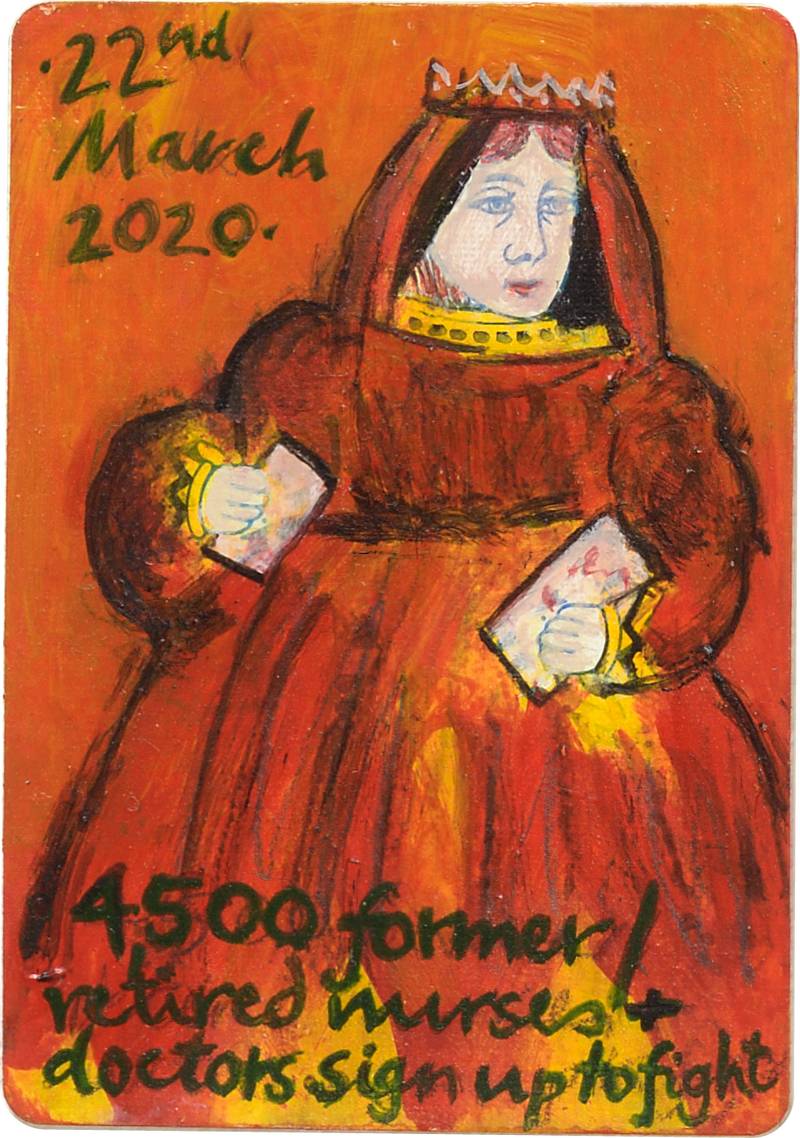 ·22nd·
March
2020·
4500 former/
retired nurses +
doctors sign up to fight